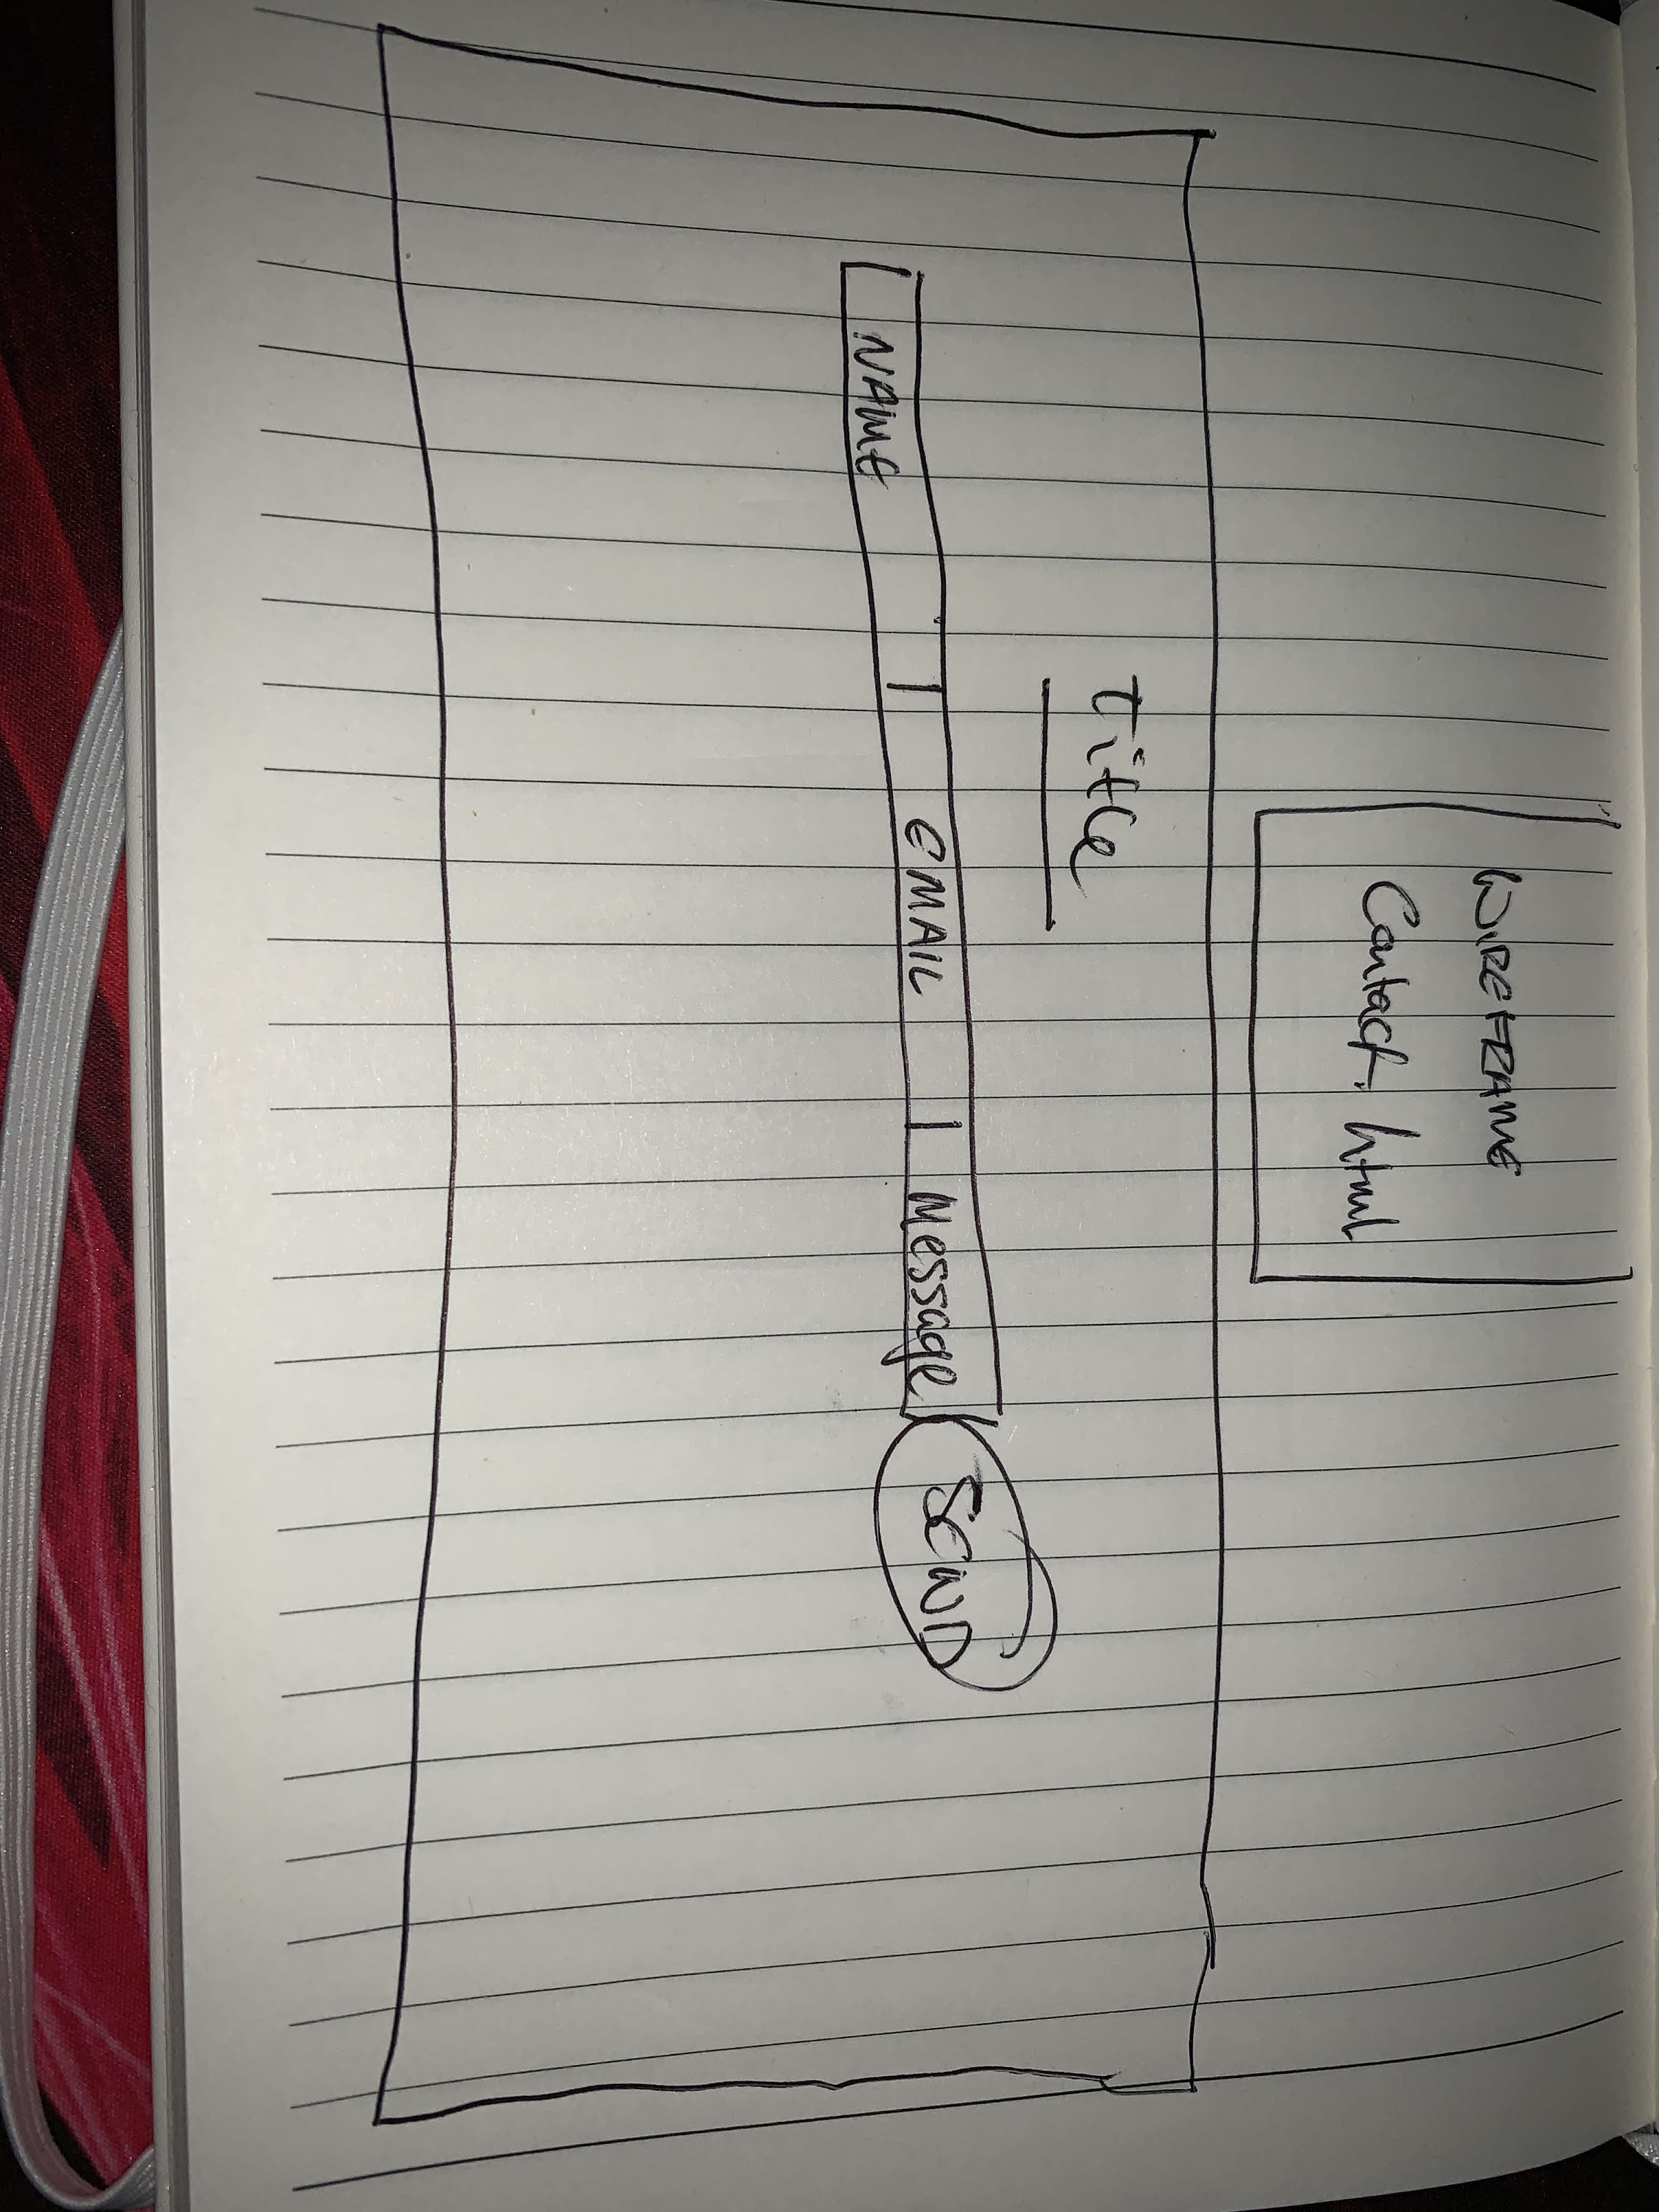 WIREFRAME
Contact.html
title
NAME | EMAIL | Message SEND